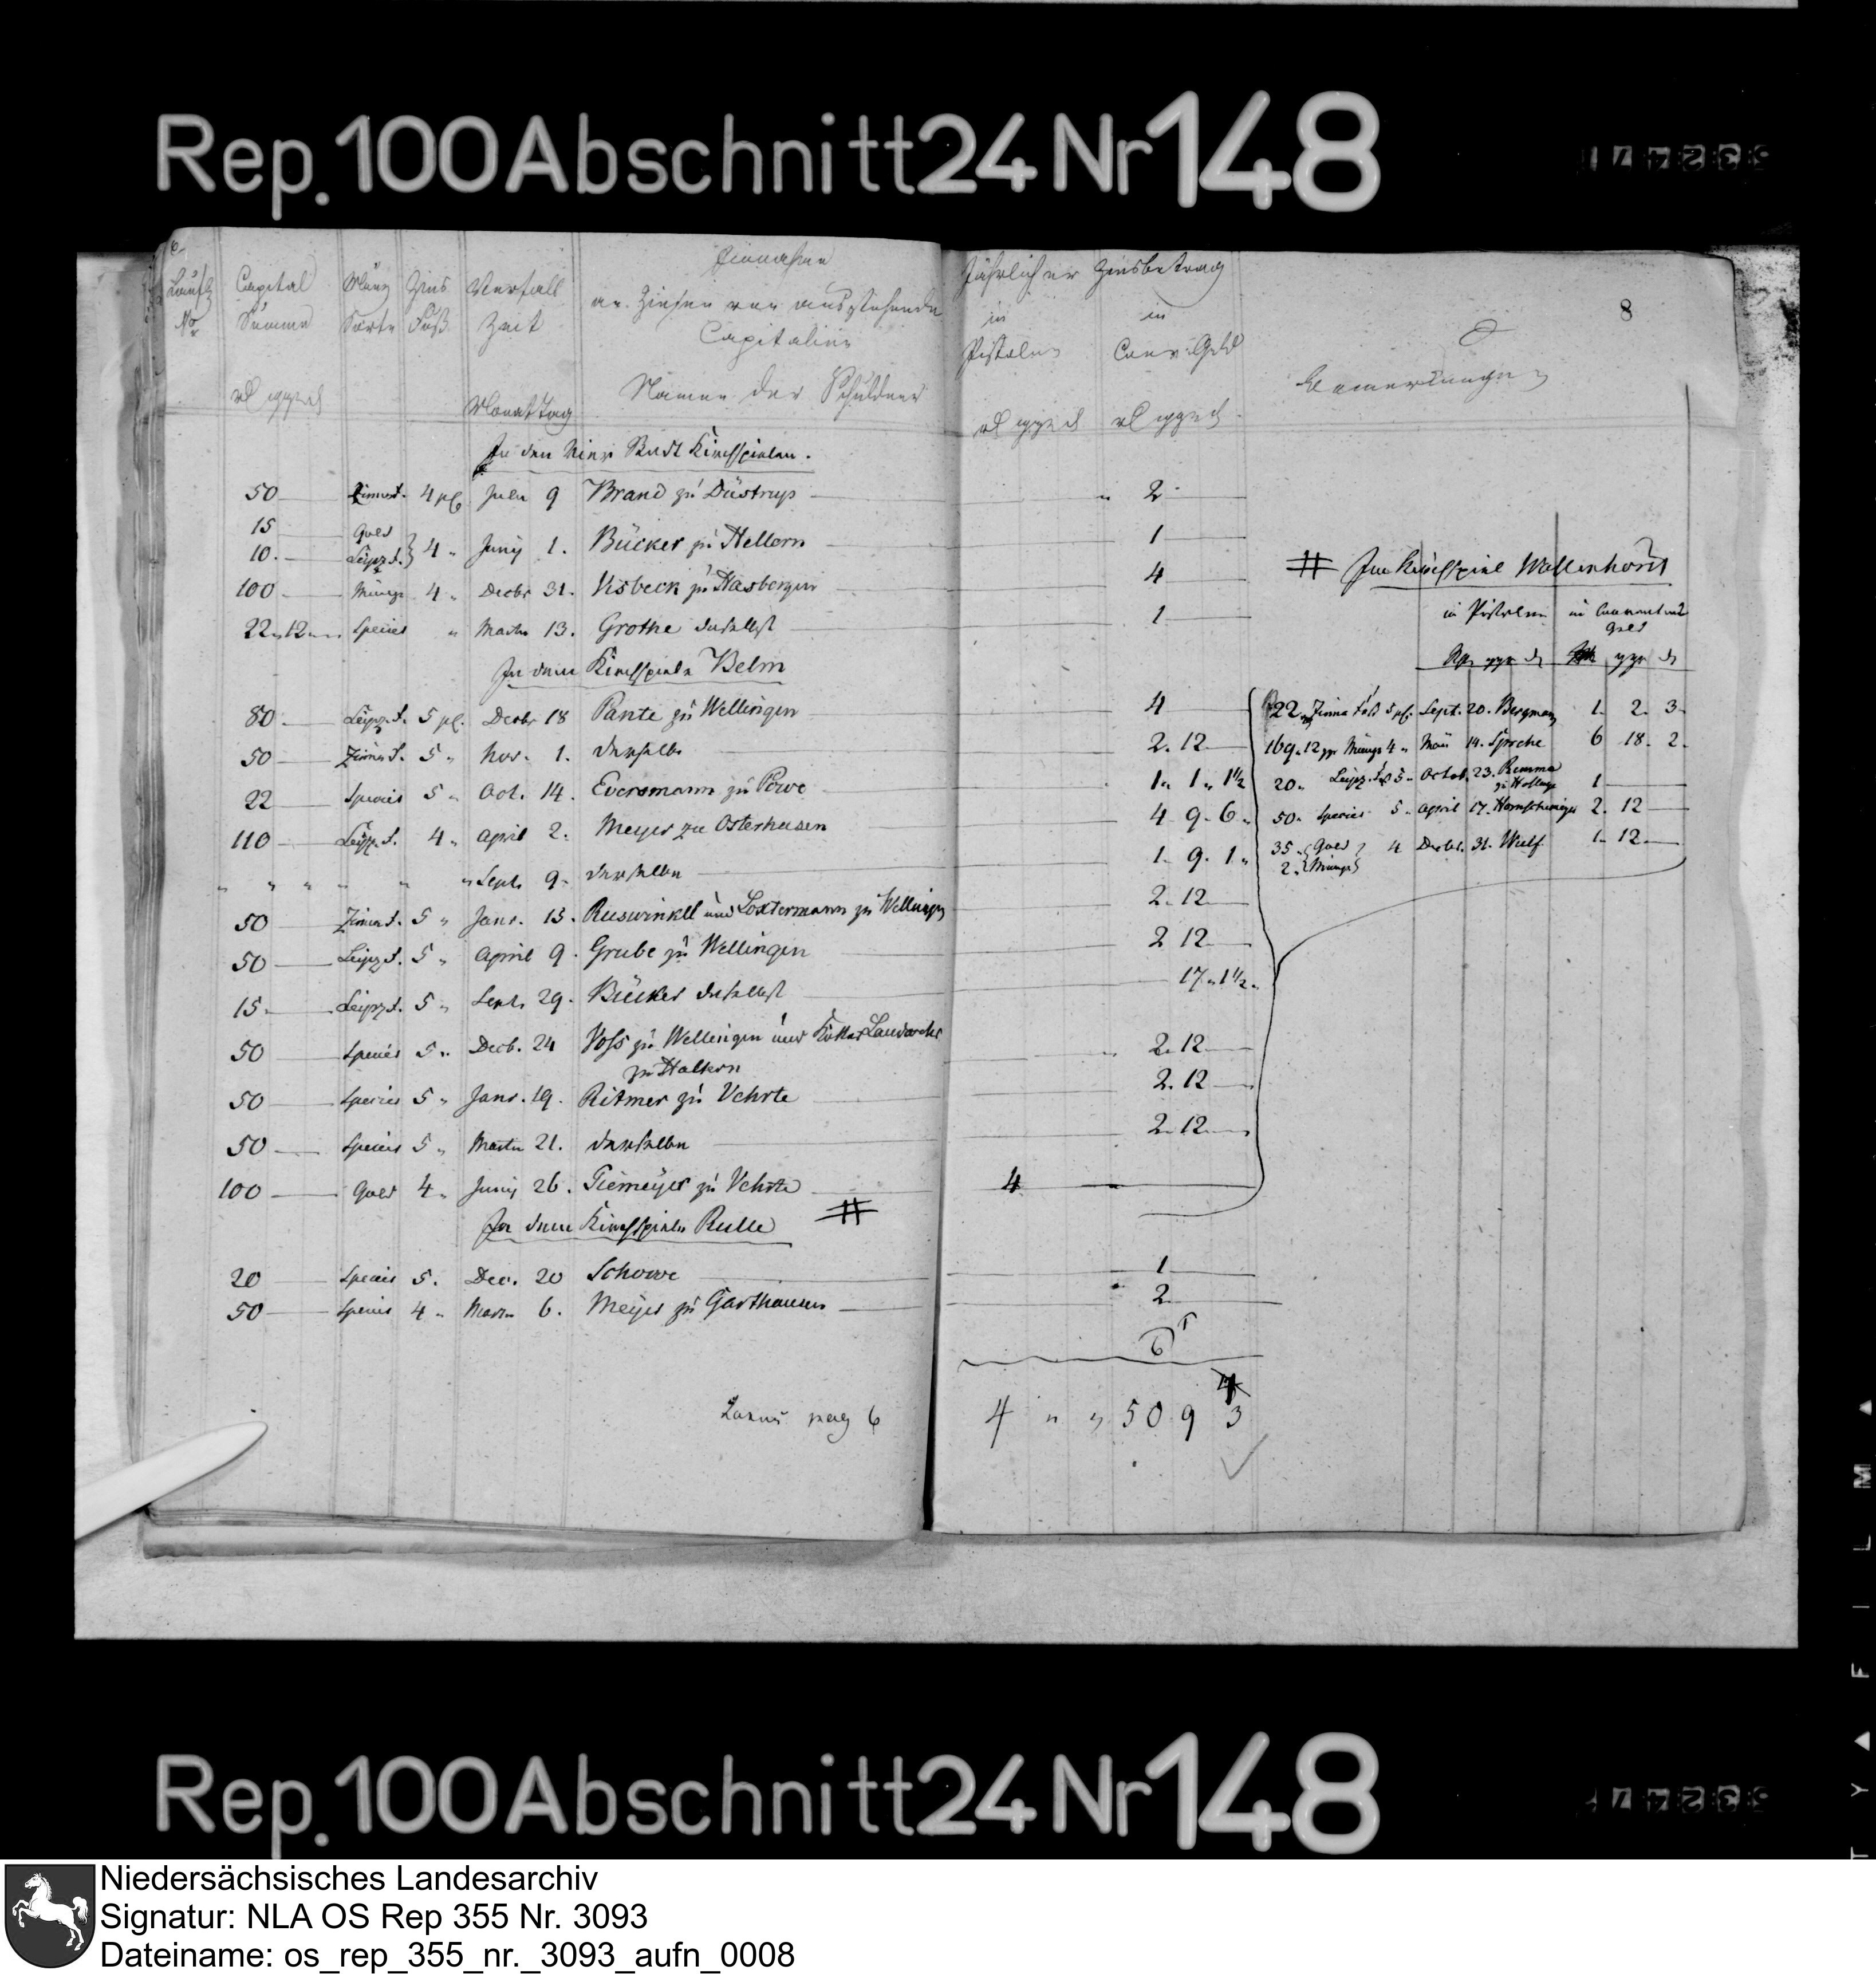 Rep. 100 Abschnitt 24 Nr 148
6.
Laufd Capital Münz Zins Verfall Einnahme
No Summe Sorte Fuß Zeit an Zinsen von ausstehenden
Capitalien
Monat Tag Namen der Schuldner
Jährlicher Zinsbetrag
in in
Pistolen Conv. Geld
8
Bemerkungen
In den Vier Stadt Kirchspielen.
50 4 pC July 9 Brand zu Düstrup 2
15 Gold
10. Leipz. f. 4 „ Juny 1. Bücker zu Hellern 1
100 Münze 4 „ Decbr 31. Visbeck zu Hasbergen 4
22 „ 12 „ Species „ Martii 13. Grothe daselbst 1
In dem Kirchspiele Belm
80 Leipz. f. 5 pC. Decbr 18 Pante zu Wellingen 4
50 Zinna f. 5 „ Nov. 1. derselbe 2. 12
22 Species 5 „ Oct. 14. Eversmann zu Powe 1 „ 1 „ 1½
110 Leipz. f. 4 „ April 2. Meyer zu Osterhausen 4 9 6 „
„ „ „ „ „ „ Sept. 9. derselbe 1. 9. 1 „
50 Zinna f. 5 „ Janr. 13. Ruswinkel und Loxtermann zu Wellingen 2. 12
50 Leipz. f. 5 „ April 9. Grube zu Wellingen 2 12
15. Leipz. f. 5 „ Sept. 29. Bücker daselbst 17 „ 1½ „
50 Species 5 „ Decb. 24 Voss zu Wellingen und
zu Haltern 2. 12
50 Species 5 „ Janr. 19. Ritmer zu Vehrte 2. 12
50 Species 5 „ Martii 21. derselbe 2. 12
100 Gold 4 „ Juny 26. Tiemeyer zu Vehrte 4
In dem Kirchspiele Rulle #
20 Species 5. Dec. 20 Schowe 1
50 Species 4 „ 6. Meyer zu Garthausen 2
Latus pag 6 4 „ „ 50 9 3
# Im Kirchspiel Wallenhorst
in Pistolen in Conventions
Geld
22 Zinna Fuß 5 pC. Sept. 20. Bergmann 1. 2. 3.
169 „ 12 ggr Münze 4 „ Maii 14. Sprehe 6 18. 2.
20 „ Leipz. Fuß 5 „ Octob. 23. Remme
zu Hollage 1
50 „ Species 5 „ April 17. 2. 12
35 „ Gold 4 Decbr. 31. Wulf 1. 12
2. Münze
Rep. 100 Abschnitt 24 Nr 148
F I L M
Niedersächsisches Landesarchiv
Signatur: NLA OS Rep 355 Nr. 3093
Dateiname: os_rep_355_nr._3093_aufn_0008